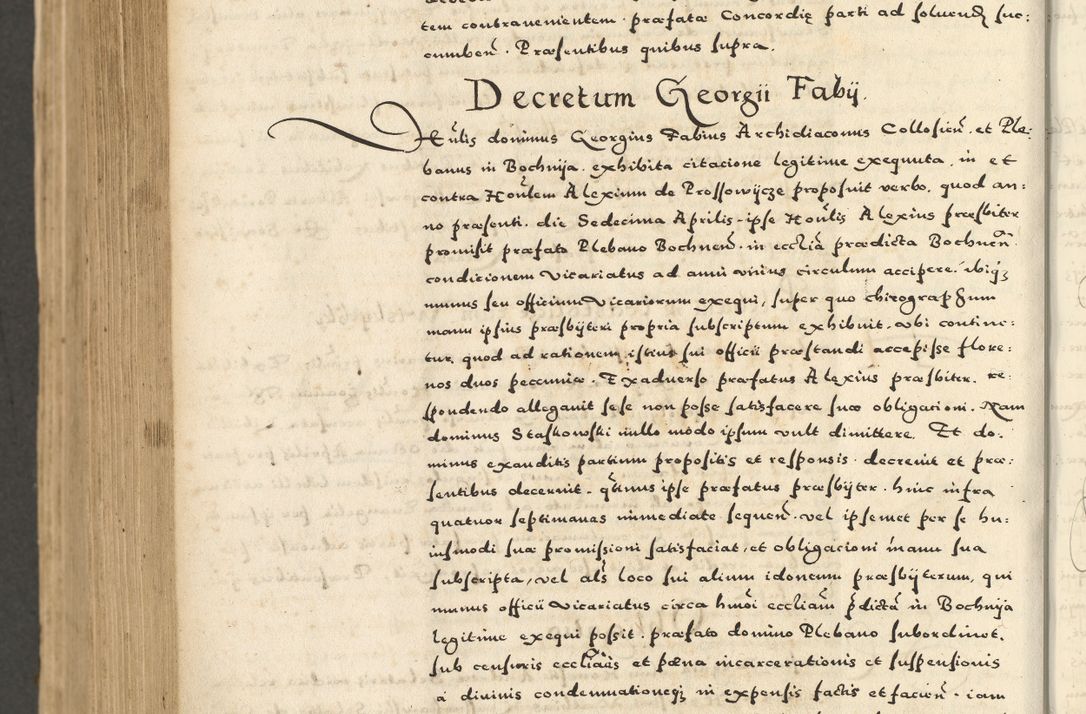 tem contravenientem præfatæ Concordię parti ad soluendũ suc:
cumbeñ. Præsentibus quibus supra.
Decretum Georgii Fabij.
dominus Georgius Fabius Archidiaconus Collosieñ. et Ple:
banus in Bochnija. exhibita citacione legitime exequuta. in et
contra Hoñlem Alexium de Prossowijcze proposuit verbo. quod an:
no præsenti. die Sedecima Aprilis. ipse Hoñlis Alexius præsbiter
promisit præfato Plebano Bochneñ. in ecclĩa prædicta Bochneñ.
condicionem vicariatus ad anni vnius circulum accipere. ibiqȝ
munus seu officium vicariorum exequi, super quo chirographum
manu ipsius præsbijteri propria subscriptum exhibuit. vbi contine:
tur, quod ad rationem istius sui officii præstandi accepisse flore:
nos duos peccuniæ. Exaduerso præfatus Alexius præsbiter. re:
spondendo allegauit sese non posse satisfacere suæ obligacioni. Nam
dominus Staskowski nullo modo ipsum vult dimittere. Et do:
minus exauditis partium propositis et responsis. decreuit et præ:
sentibus decernit. qtinus ipse præfatus præsbijter. hinc infra
quatuor septimanas immediate sequeñ. vel ipsemet per se hu:
iusmodi suæ promissioni satisfaciat, et obligacioni manu sua
subscripta, vel als loco sui alium idoneum præsbijterum, qui
munus officii vicariatus circa hmõi eccliam p̃dictã in Bochnija
legitime exequi possit. præfato domino Plebano subordinet.
sub censuris eccliãis et pæna incarcerationis et suspensionis
a diuinis condemnationeqȝ in expensis factis et facieñ. iam